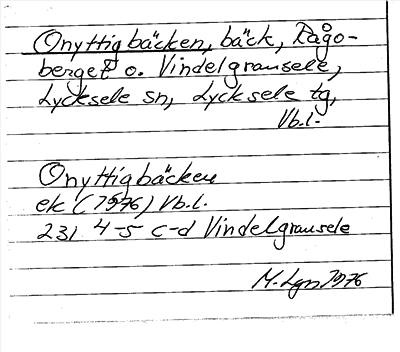 Onyttigbäcken, bäck, Rågo-
berget o. Vindelgransele,
Lycksele sn, Lycksele tg,
Vb.l.
Onyttigbäcken
ek (1976) Vb.l.
231 4-5 c-d Vindelgransele
M. Lgn 1976